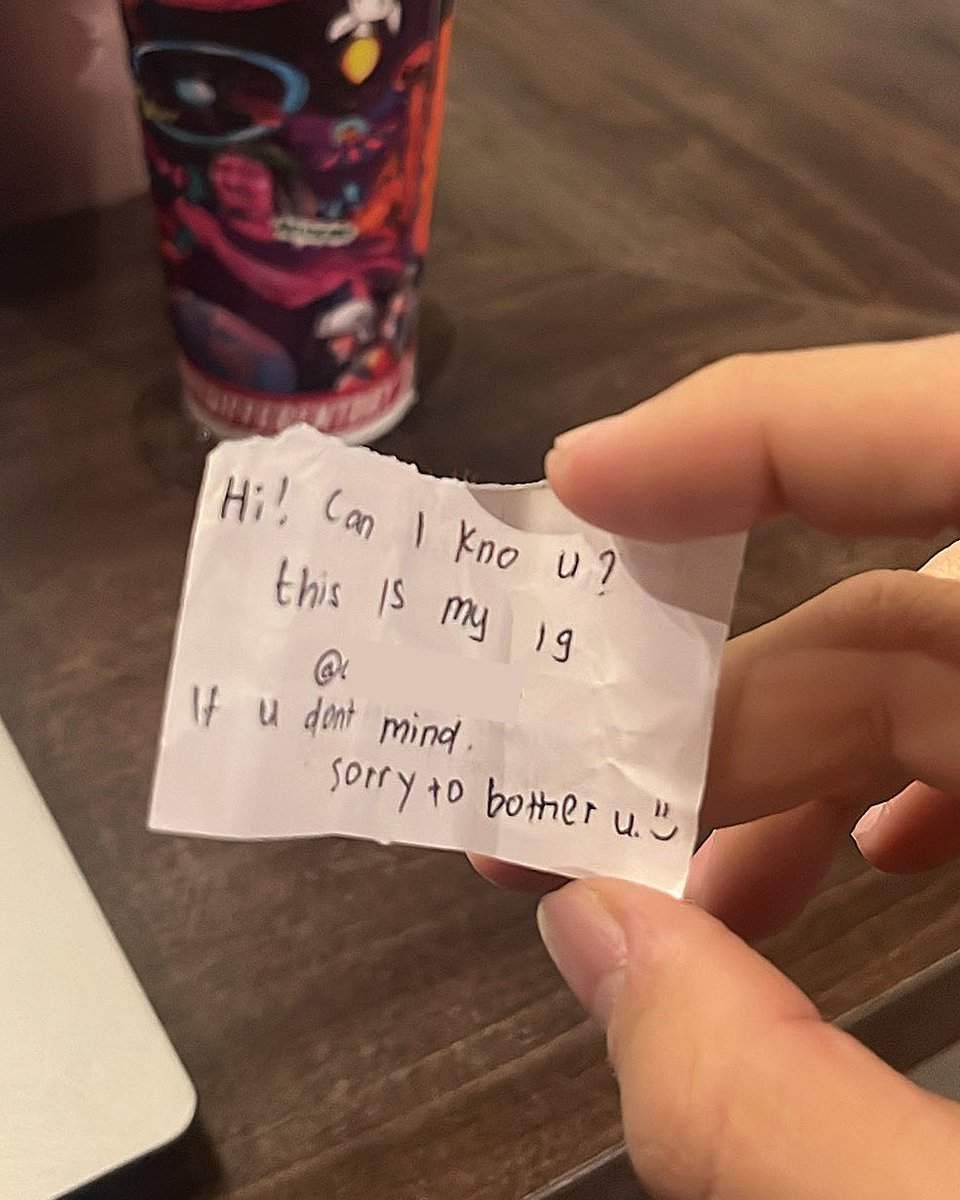 Hi! Can I kno u?
this is my ig
@
If u dont mind.
sorry to bother u.